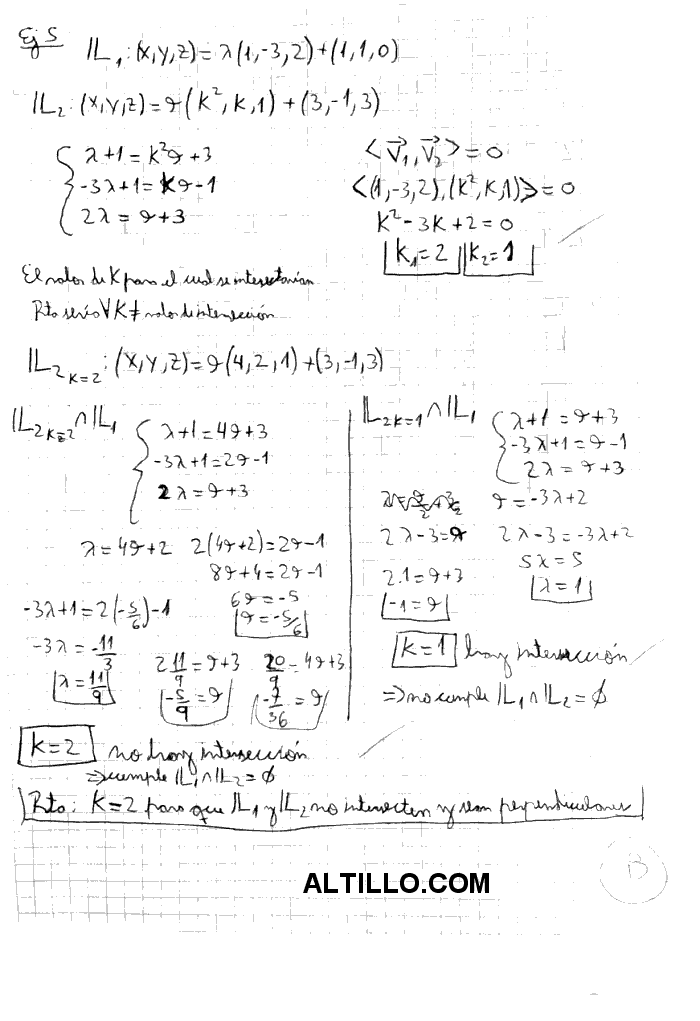 Ej 5
𝕃₁: (x,y,z) = λ(1,-3,2)+(1,1,0)
𝕃₂: (x,y,z) = ϑ(k²,k,1)+(3,-1,3)
λ+1 = k²ϑ+3
-3λ+1 = kϑ-1
2λ = ϑ+3
<V₁,V₂> = 0
<(1,-3,2),(k²,k,1)> = 0
k²-3k+2=0
k₁=2 k₂=1
El valor de K para el cual se intersectarían
Rta sería ∀K ≠ valor de intersección
𝕃₂ₖ₌₂: (x,y,z) = ϑ(4,2,1)+(3,-1,3)
𝕃₂ₖ₌₂ ∩ 𝕃₁
λ+1 = 4ϑ+3
-3λ+1 = 2ϑ-1
2λ = ϑ+3
λ = 4ϑ+2 2(4ϑ+2) = 2ϑ-1
8ϑ+4 = 2ϑ-1
6ϑ = -5
ϑ = -5/6
-3λ+1 = 2(-5/6)-1
-3λ = -11/3
λ = 11/9
2 11/9 = ϑ+3
-5/9 = ϑ
20/9 = 4ϑ+3
-7/36 = ϑ
𝕃₂ₖ₌₁ ∩ 𝕃₁
λ+1 = ϑ+3
-3λ+1 = ϑ-1
2λ = ϑ+3
ϑ = -3λ+2
2λ-3 = ϑ 2λ-3 = -3λ+2
5λ = 5
2.1 = ϑ+3 λ = 1
-1 = ϑ
k=1 hay intersección
⇒ no cumple 𝕃₁ ∩ 𝕃₂ = ∅
k=2 no hay intersección
⇒ cumple 𝕃₁ ∩ 𝕃₂ = ∅
Rta: K=2 para que 𝕃₁ y 𝕃₂ no intersecten y sean perpendiculares
B
ALTILLO.COM